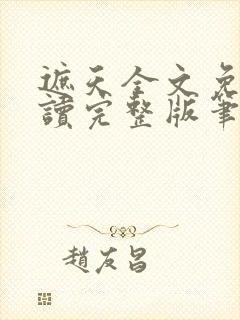 遮天全文免
讀完整版筆
趙友昌